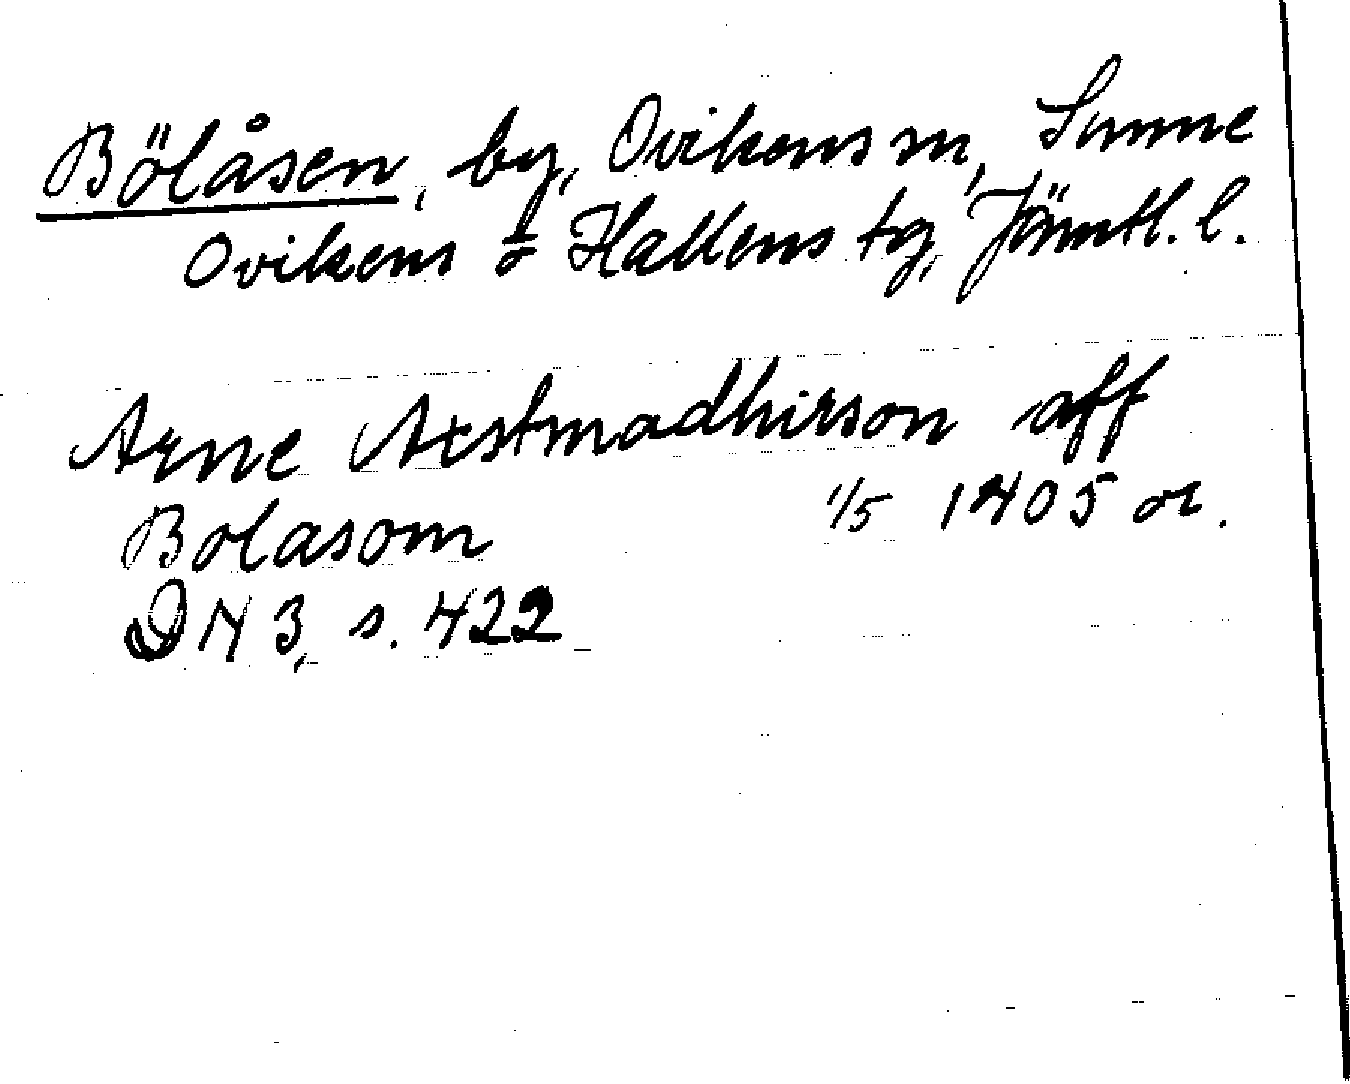 Bölåsen, by, Ovikens sn, Sunne
Ovikens o Hallens tg, Jämtl. l.
Arne Astmadhirson aff
Bolasom 1/5 1405 or.
DN 3, s. 422